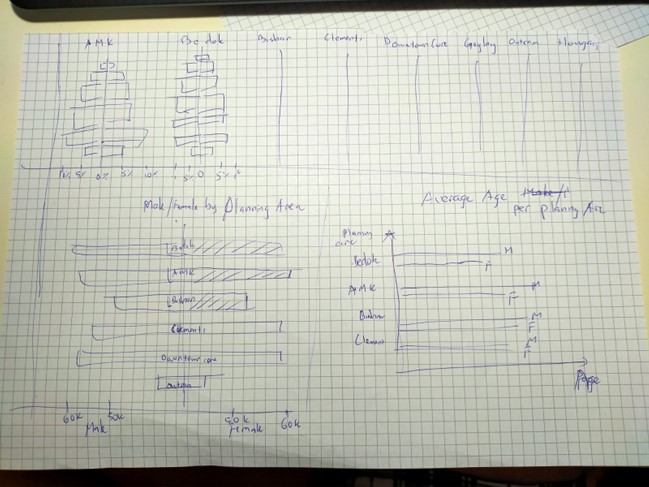 AMK Bedok Bishan Clementi Downtown Core Geylang Outram
5% 0% 5% 10% 5% 0 5%
Male/Female by Planning Area
Average Age Male/F
per planning Area
Planning
area
Bedok M
F
AMK M
F
Bishan M
F
Clementi M
F
Bedok
AMK
Bishan
Clementi
Downtown core
Outram
60k 50k 50k 60k
Male Female